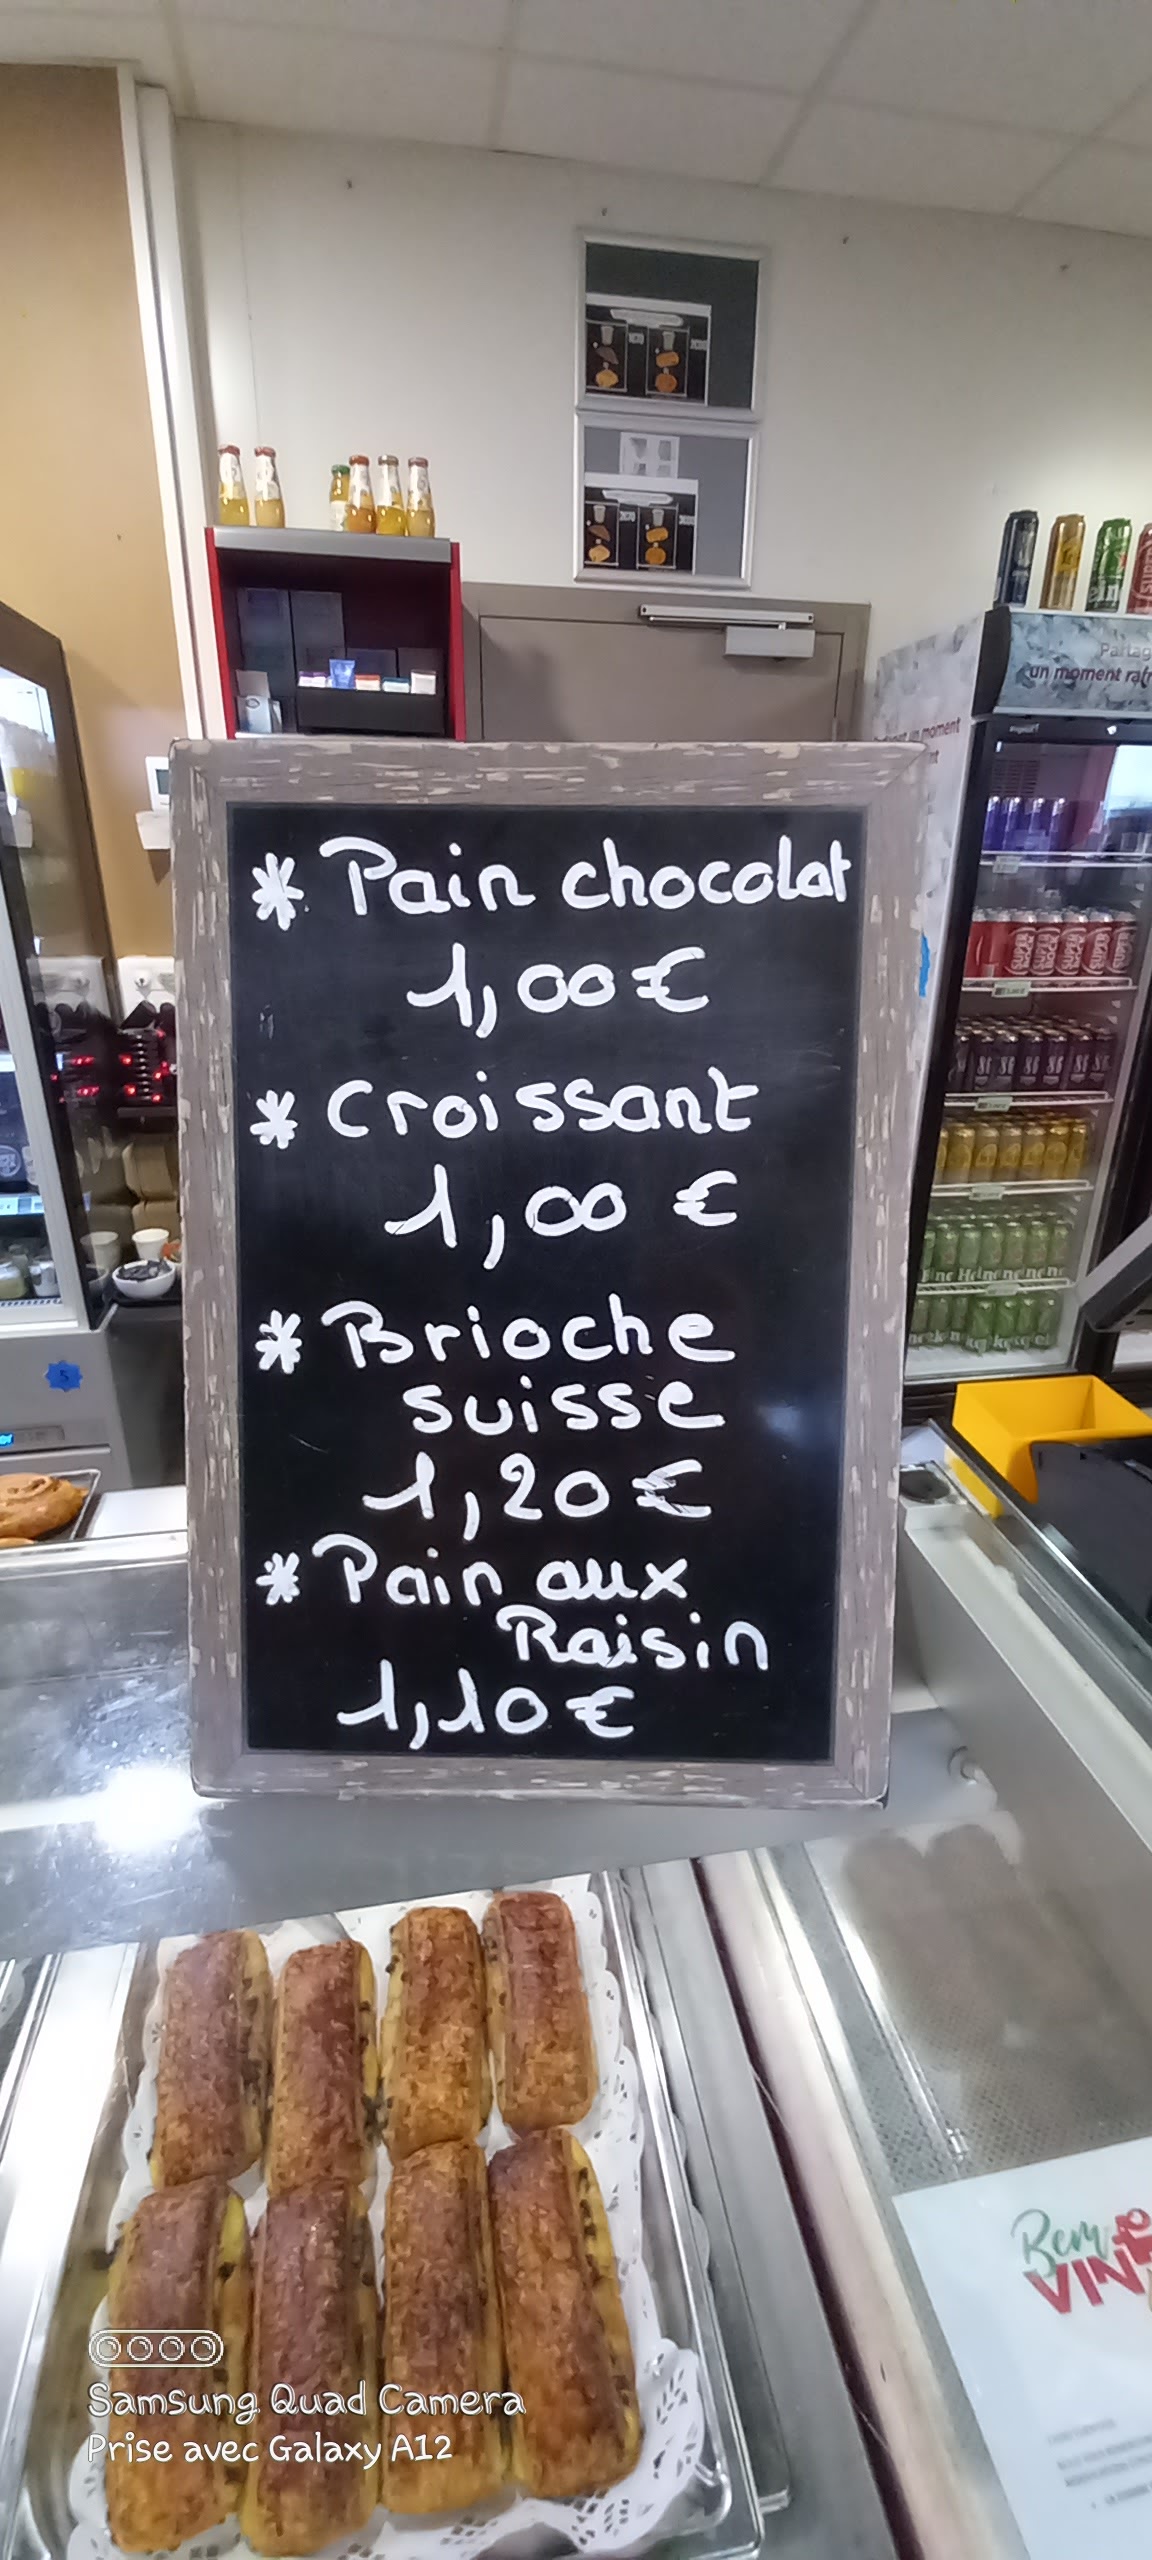 Partag
un moment rafr
* Pain chocolat
1,00€
* Croissant
1,00 €
* Brioche
suisse
1,20€
* Pain aux
Raisin
1,10€
SUPER
SUPER
SUPER
SUPER
5
VIN
Samsung Quad Camera
Prise avec Galaxy A12